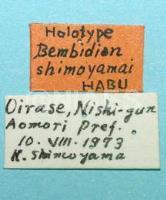 Holotype
Bembidion
shimoyamai
HABU
Oirase, Nishi-gun
Aomori Pref.
10. VIII. 1973
K. Shimoyama